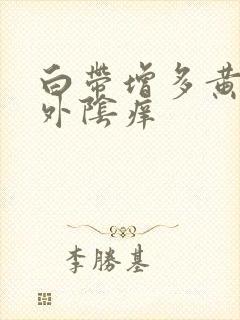 白帶增多黃
外陰痒
李勝基